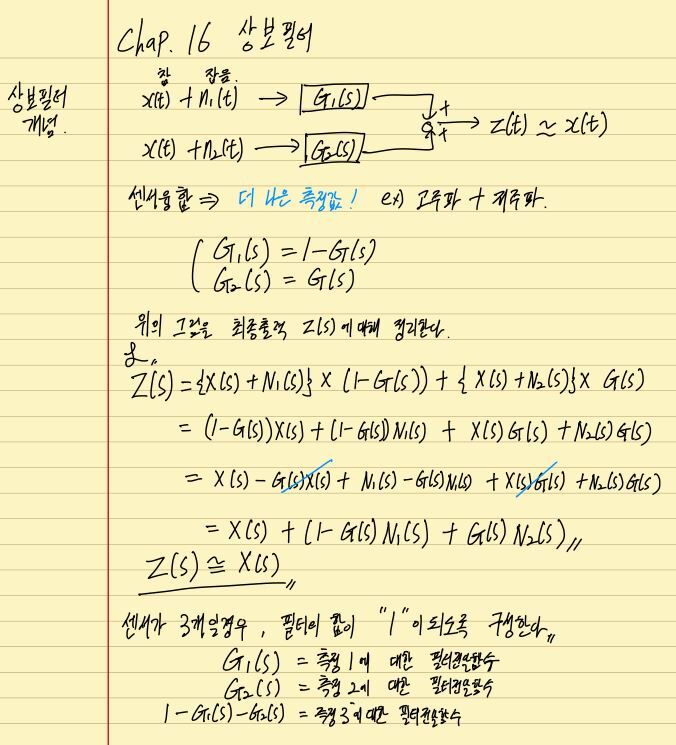 Chap. 16 상보필터
상보필터
개념.
참 잡음.
x(t) + n₁(t) → G₁(s)
+
+ → z(t) ≃ x(t)
x(t) + n₂(t) → G₂(s)
센서융합 ⇒ 더 나은 측정값! ex) 고주파 + 저주파.
( G₁(s) = 1-G(s)
G₂(s) = G(s)
위의 그림을 최종출력 Z(s)에 대해 정리한다.
ℒ〃
Z(s) = {X(s) + N₁(s)} × (1-G(s)) + { X(s) + N₂(s)} × G(s)
= (1-G(s))X(s) + (1-G(s))N₁(s) + X(s)G(s) + N₂(s)G(s)
= X(s) - G(s)X(s) + N₁(s) - G(s)N₁(s) + X(s)G(s) + N₂(s)G(s)
= X(s) + (1-G(s)N₁(s) + G(s)N₂(s)〃
Z(s) ≅ X(s)〃
센서가 3개일경우, 필터의 합이 "1"이 되도록 구성한다〃
G₁(s) = 측정1에 대한 필터전달함수
G₂(s) = 측정2에 대한 필터전달함수
1-G₁(s)-G₂(s) = 측정3에 대한 필터전달함수